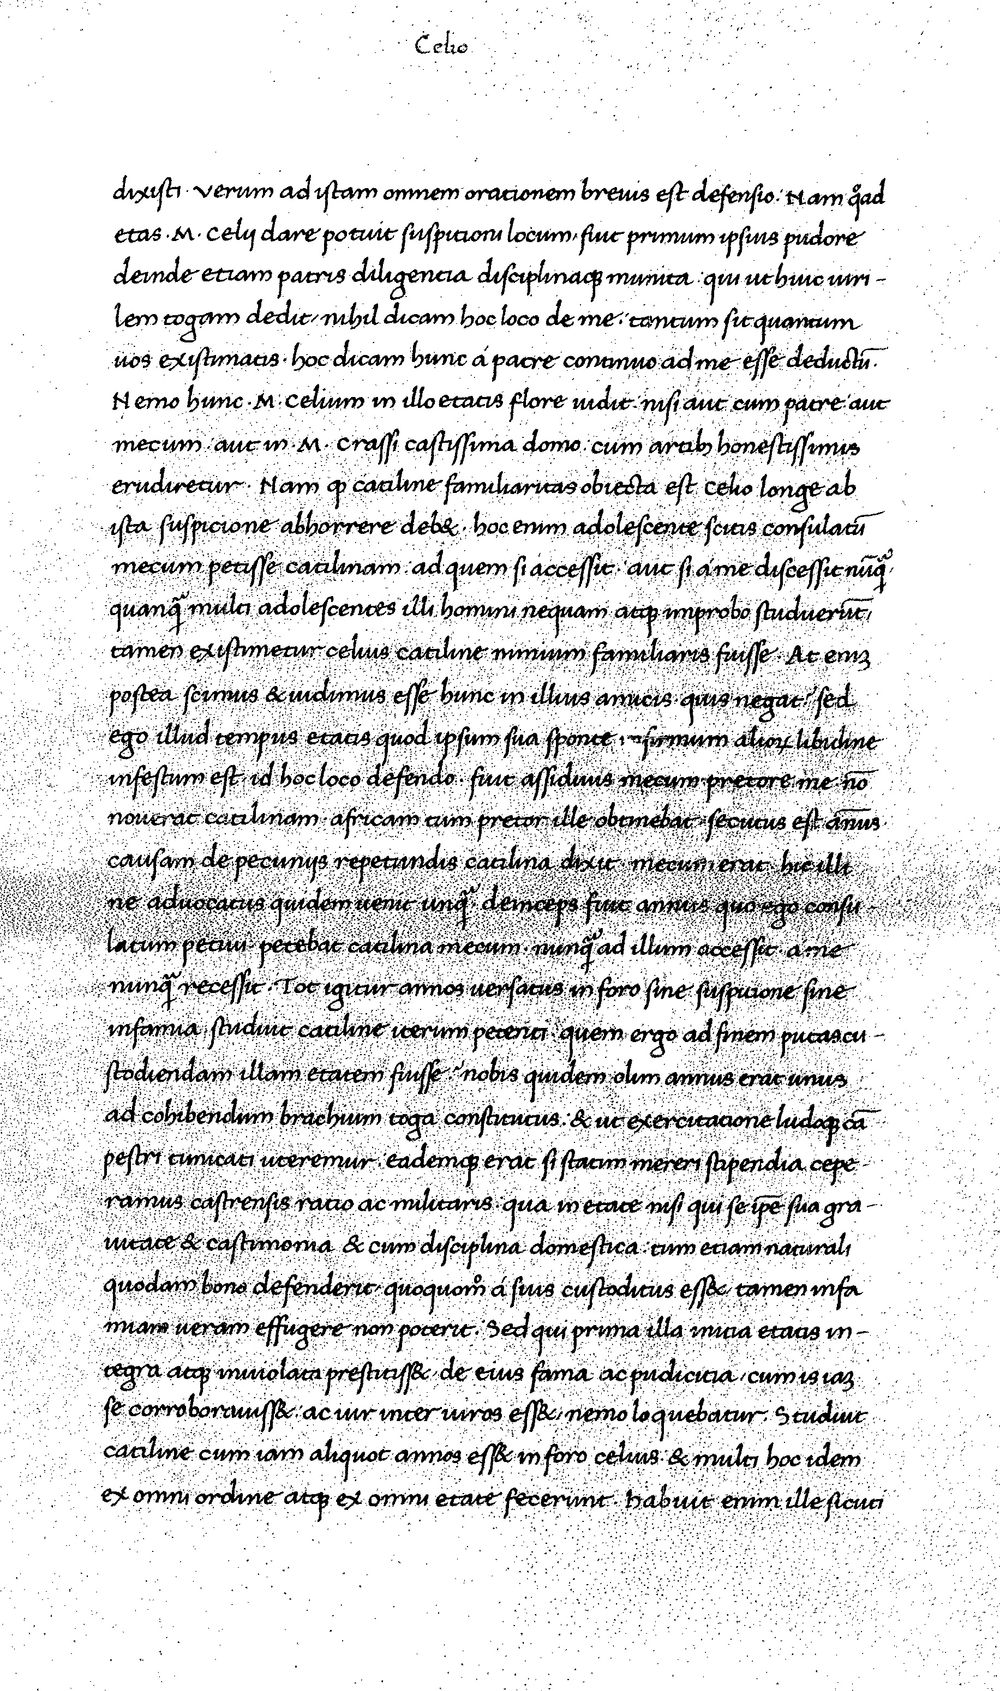 Celio
dixisti. verum ad istam omnem orationem breuis est defensio. Nam q̊ad
etas. M. Celij dare potuit suspitioni locum, fuit primum ipsius pudore
deinde etiam patris diligentia disciplinaq; munita. qui ut huic uiri-
lem togam dedit, nihil dicam hoc loco de me. tantum sit quantum
uos existimatis. hoc dicam hunc á patre continuo ad me esse deductū.
Nemo hunc. M. Celium in illo etatis flore uidit. nisi aut cum patre aut
mecum. aut in. M. Crassi castissima domo. cum artib; honestissimis
erudiretur. Nam ꝙ catiline familiaritas obiecta est Celio longe ab
ista suspicione abhorrere deb&. hoc enim adolescente scitis consulatū
mecum petisse catilinam. ad quem si accessit. aut si a me discessit nūq̃
quanq̃ multi adolescentes illi homini nequam atq; improbo studuerūt,
tamen existimetur celius catiline nimium familiaris fuisse. At eniʒ
postea scimus & uidimus esse hunc in illius amicis quis negat? sed
ego illud tempus etatis quod ipsum sua sponte infirmum alioꝝ libidine
infestum est. id hoc loco defendo. fuit assiduus mecum pretore me. nō
nouerat catilinam. africam tum pretor ille obtinebat. secutus est ānus.
causam de pecunijs repetundis catilina dixit. mecum erat. hic illi
ne aduocatus quidem uenit unq̃. deinceps fuit annus quo ego consu-
latum petiui. petebat catilina mecum. nunq̃ ad illum accessit. a me
nunq̃ recessit. Tot igitur annos uersatus in foro sine suspicione sine
infamia. studuit catiline iterum petenti. quem ergo ad finem putas cu-
stodiendam illam etatem fuisse? nobis quidem olim annus erat unus
ad cohibendum brachium toga constitutus. & ut exercitatione ludoq; cā
pestri tunicati uteremur. eademq; erat si statim mereri stipendia cepe-
ramus castrensis ratio ac militaris. qua in etate nisi qui se ip̄e sua gra-
uitate & castimonia & cum disciplina domestica. tum etiam naturali
quodam bono defenderit. quoquom̊ á suis custoditus ess&, tamen infa
miam ueram effugere non poterit. Sed qui prima illa initia etatis in-
tegra atq; inuiolata prestitiss&, de eius fama ac pudicitia, cum is iaʒ
se corroborauiss&. ac uir inter uiros ess&, nemo loquebatur. Studuit
catiline cum iam aliquot annos ess& in foro celius. & multi hoc idem
ex omni ordine atq; ex omni etate fecerunt. habuit enim ille sicuti